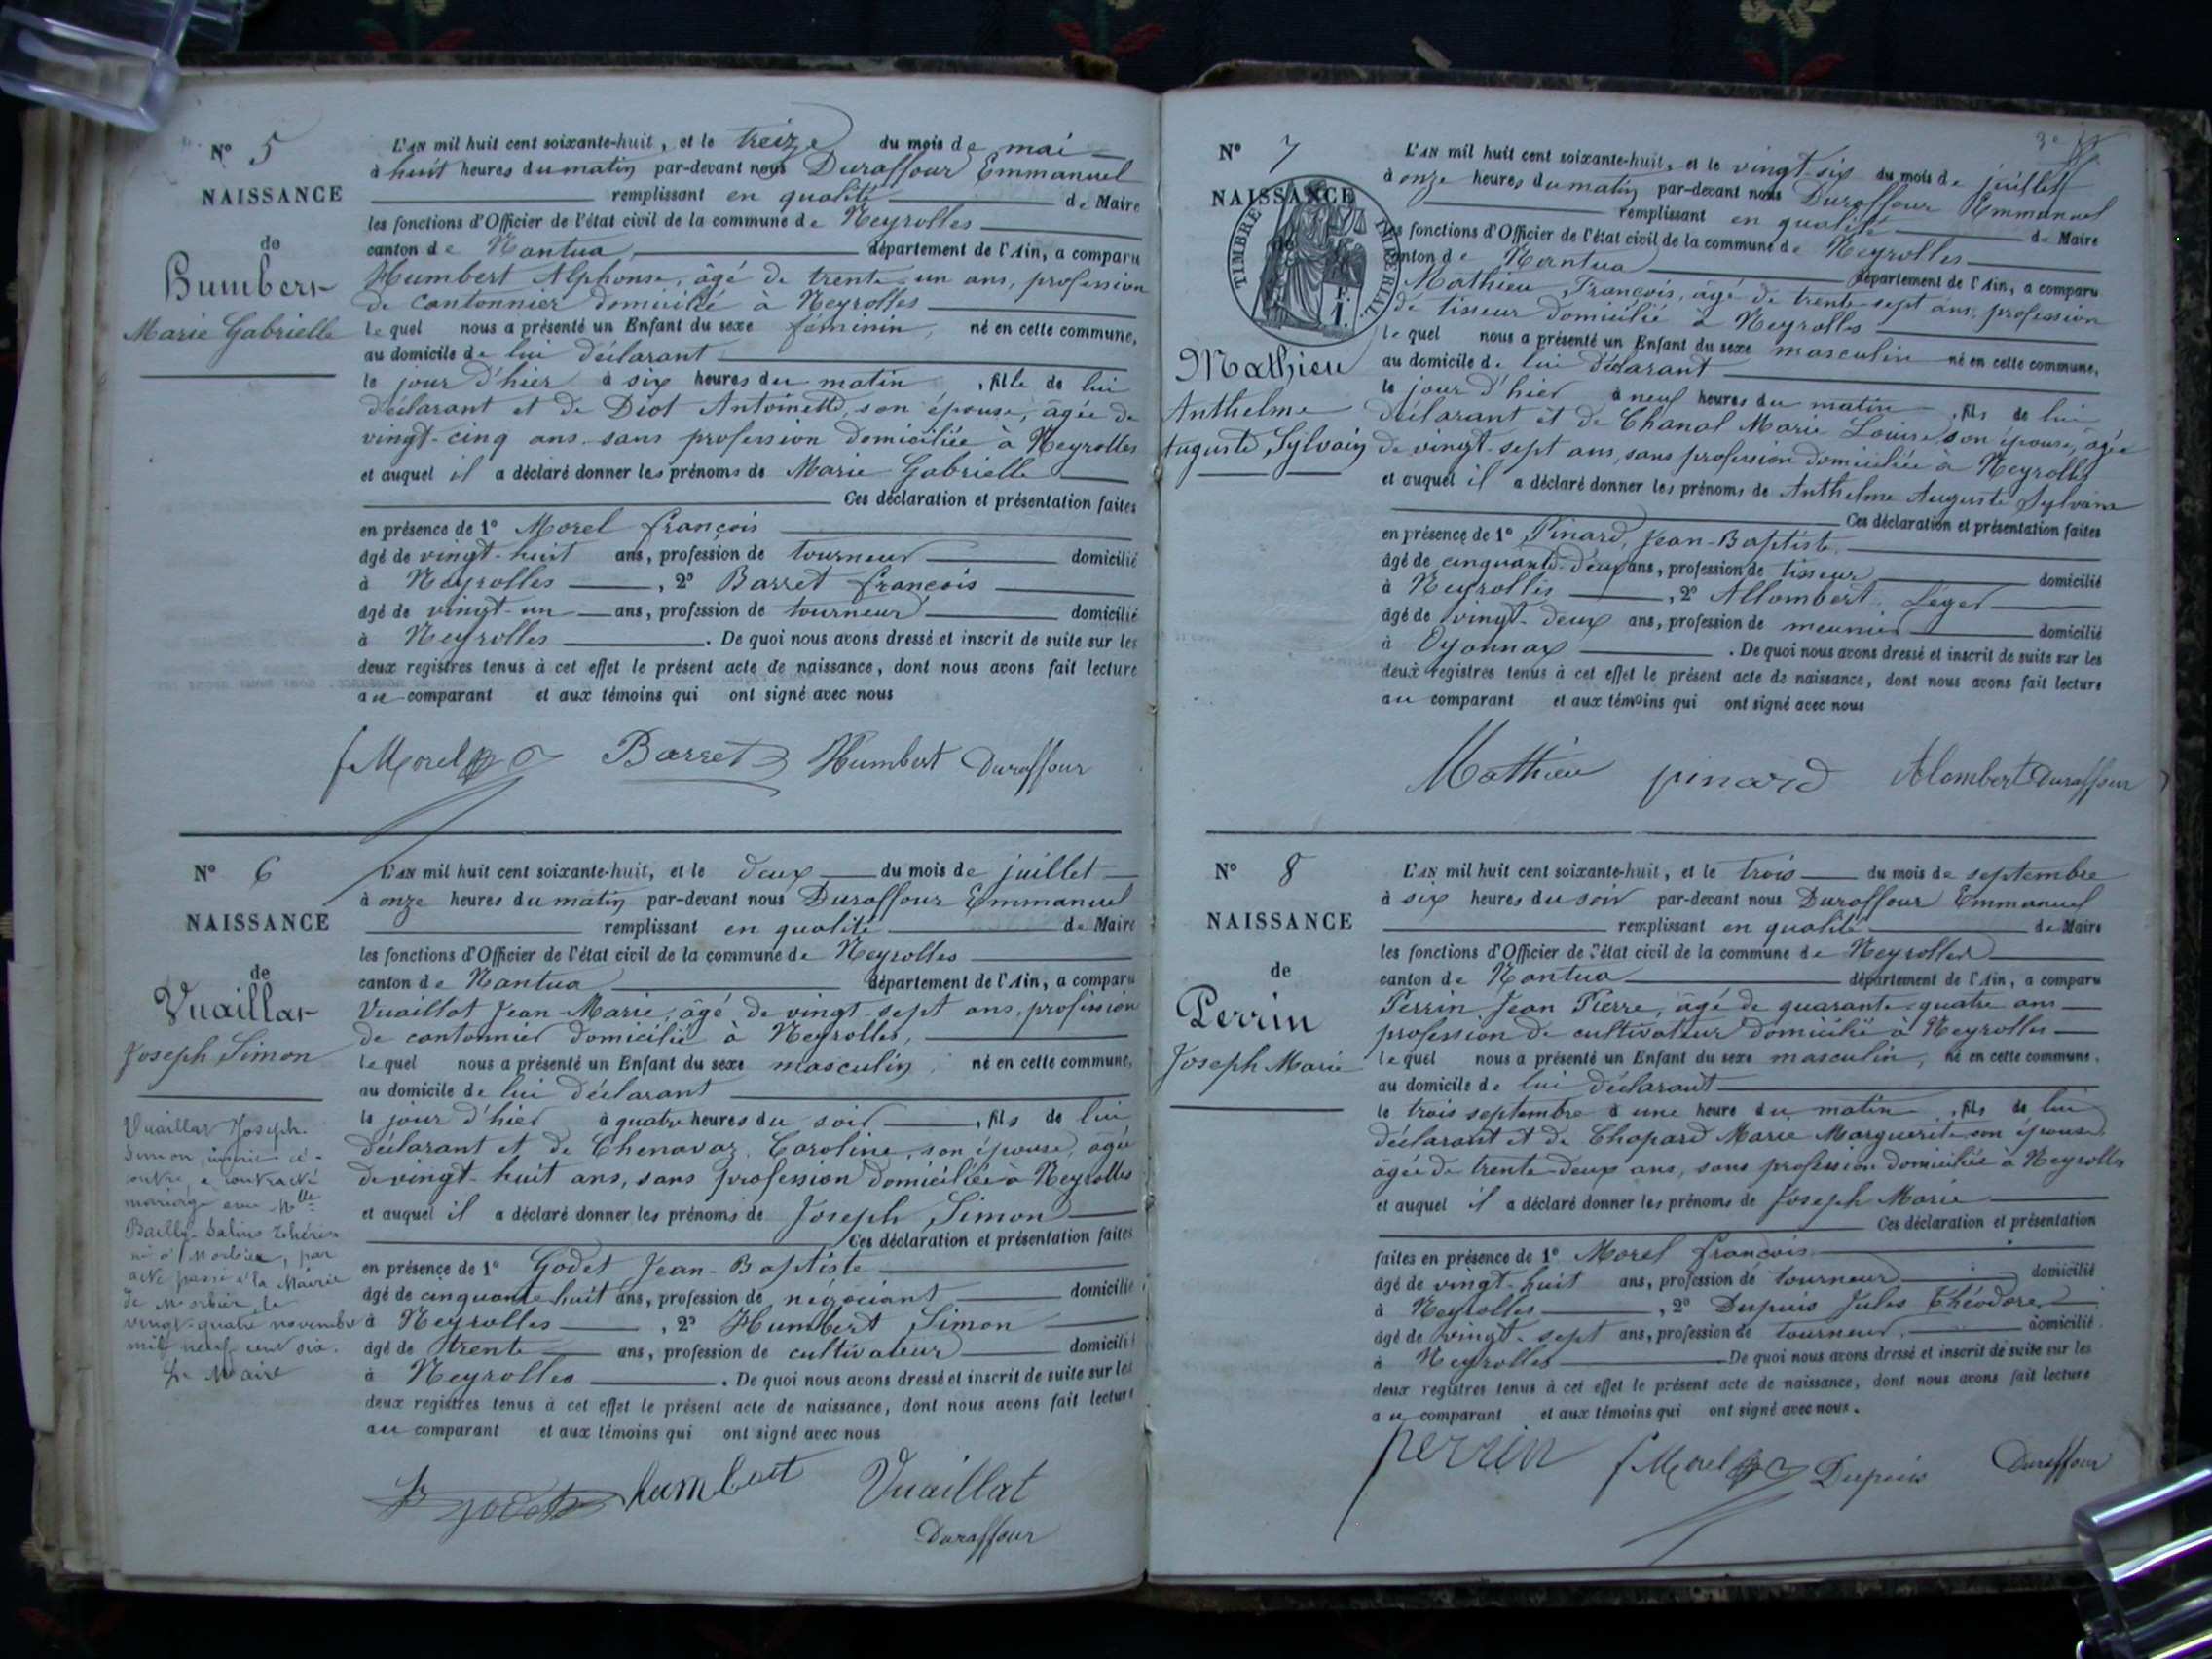 N° 5
NAISSANCE
de
Humbert
Marie Gabrielle
L'AN mil huit cent soixante-huit, et le treize du mois de mai
à huit heures du matin par-devant nous Duraffour Emmanuel
remplissant en qualité de Maire
les fonctions d'Officier de l'état civil de la commune de Neyrolles
canton de Nantua département de l'Ain, a comparu
Humbert Alphonse, âgé de trente-un ans, profession
de cantonnier domicilié à Neyrolles
lequel nous a présenté un Enfant du sexe féminin, né en cette commune,
au domicile de lui déclarant
le jour d'hier à six heures du matin, fille de lui
déclarant et de Diot Antoinette, son épouse, âgée de
vingt-cinq ans sans profession domiciliée à Neyrolles
et auquel il a déclaré donner les prénoms de Marie Gabrielle
Ces déclaration et présentation faites
en présence de 1° Morel françois
âgé de vingt-huit ans, profession de tourneur domicilié
à Neyrolles, 2° Barret françois
âgé de vingt-un ans, profession de tourneur domicilié
à Neyrolles. De quoi nous avons dressé et inscrit de suite sur les
deux registres tenus à cet effet le présent acte de naissance, dont nous avons fait lecture
au comparant et aux témoins qui ont signé avec nous
f Morel Barret Humbert Duraffour
N° 6
NAISSANCE
de
Vuaillat
Joseph Simon
Vuaillat Joseph
Simon, inscrit ci-
contre, a contracté
mariage avec Mlle
Bailly-Salins
né à Morbier, par
acte passé à la Mairie
de Morbier le
vingt-quatre novembre
mil neuf cent six.
Le Maire
L'AN mil huit cent soixante-huit, et le deux du mois de juillet
à onze heures du matin par-devant nous Duraffour Emmanuel
remplissant en qualité de Maire
les fonctions d'Officier de l'état civil de la commune de Neyrolles
canton de Nantua département de l'Ain, a comparu
Vuaillat Jean-Marie, âgé de vingt-sept ans, profession
de cantonnier domicilié à Neyrolles,
lequel nous a présenté un Enfant du sexe masculin, né en cette commune,
au domicile de lui déclarant
le jour d'hier à quatre heures du soir, fils de lui
déclarant et de Chenavaz, Caroline, son épouse, agée
de vingt-huit ans, sans profession domiciliée à Neyrolles
et auquel il a déclaré donner les prénoms de Joseph Simon
Ces déclaration et présentation faites
en présence de 1° Godet Jean-Baptiste
âgé de cinquante huit ans, profession de négociant domicilié
à Neyrolles, 2° Humbert Simon
âgé de trente ans, profession de cultivateur domicilié
à Neyrolles. De quoi nous avons dressé et inscrit de suite sur les
deux registres tenus à cet effet le présent acte de naissance, dont nous avons fait lecture
au comparant et aux témoins qui ont signé avec nous
godet humbert Vuaillat
Duraffour
N° 7
NAISSANCE
TIMBRE IMPÉRIAL
1 F.
Mathieu
Anthelme
Auguste, Sylvain
L'AN mil huit cent soixante-huit, et le vingt-six du mois de juillet
à onze heures du matin par-devant nous Duraffour Emmanuel
remplissant en qualité de Maire
les fonctions d'Officier de l'état civil de la commune de Neyrolles
canton de Nantua département de l'Ain, a comparu
Mathieu, François, âgé de trente-sept ans, profession
de tisseur domicilié à Neyrolles
lequel nous a présenté un Enfant du sexe masculin né en cette commune,
au domicile de lui déclarant
le jour d'hier à neuf heures du matin, fils de lui
déclarant et de Chanal Marie Louise, son épouse, agée
de vingt-sept ans, sans profession domiciliée à Neyrolles
et auquel il a déclaré donner les prénoms de Anthelme Auguste Sylvain
Ces déclaration et présentation faites
en présence de 1° Pinard, Jean-Baptiste,
âgé de cinquante-deux ans, profession de tisseur domicilié
à Neyrolles, 2° Allombert Léger
âgé de vingt-deux ans, profession de meunier domicilié
à Oyonnax. De quoi nous avons dressé et inscrit de suite sur les
deux registres tenus à cet effet le présent acte de naissance, dont nous avons fait lecture
au comparant et aux témoins qui ont signé avec nous
Mathieu pinard Alombert Duraffour
N° 8
NAISSANCE
de
Perrin
Joseph Marie
L'AN mil huit cent soixante-huit, et le trois du mois de septembre
à six heures du soir par-devant nous Duraffour Emmanuel
remplissant en qualité de Maire
les fonctions d'Officier de l'état civil de la commune de Neyrolles
canton de Nantua département de l'Ain, a comparu
Perrin, Jean Pierre, âgé de quarante-quatre ans
profession de cultivateur domicilié à Neyrolles
lequel nous a présenté un Enfant du sexe masculin, né en cette commune,
au domicile de lui déclarant
le trois septembre à une heure du matin, fils de lui
déclarant et de Chapard Marie Marguerite son épouse,
âgée de trente-deux ans, sans profession domiciliée à Neyrolles
et auquel il a déclaré donner les prénoms de Joseph Marie
Ces déclaration et présentation
faites en présence de 1° Morel françois
âgé de vingt-huit ans, profession de tourneur domicilié
à Neyrolles, 2° Dupuis Jules Théodore
âgé de vingt-sept ans, profession de tourneur, domicilié
à Neyrolles De quoi nous avons dressé et inscrit de suite sur les
deux registres tenus à cet effet le présent acte de naissance, dont nous avons fait lecture
au comparant et aux témoins qui ont signé avec nous.
perrin f Morel Dupuis Duraffour